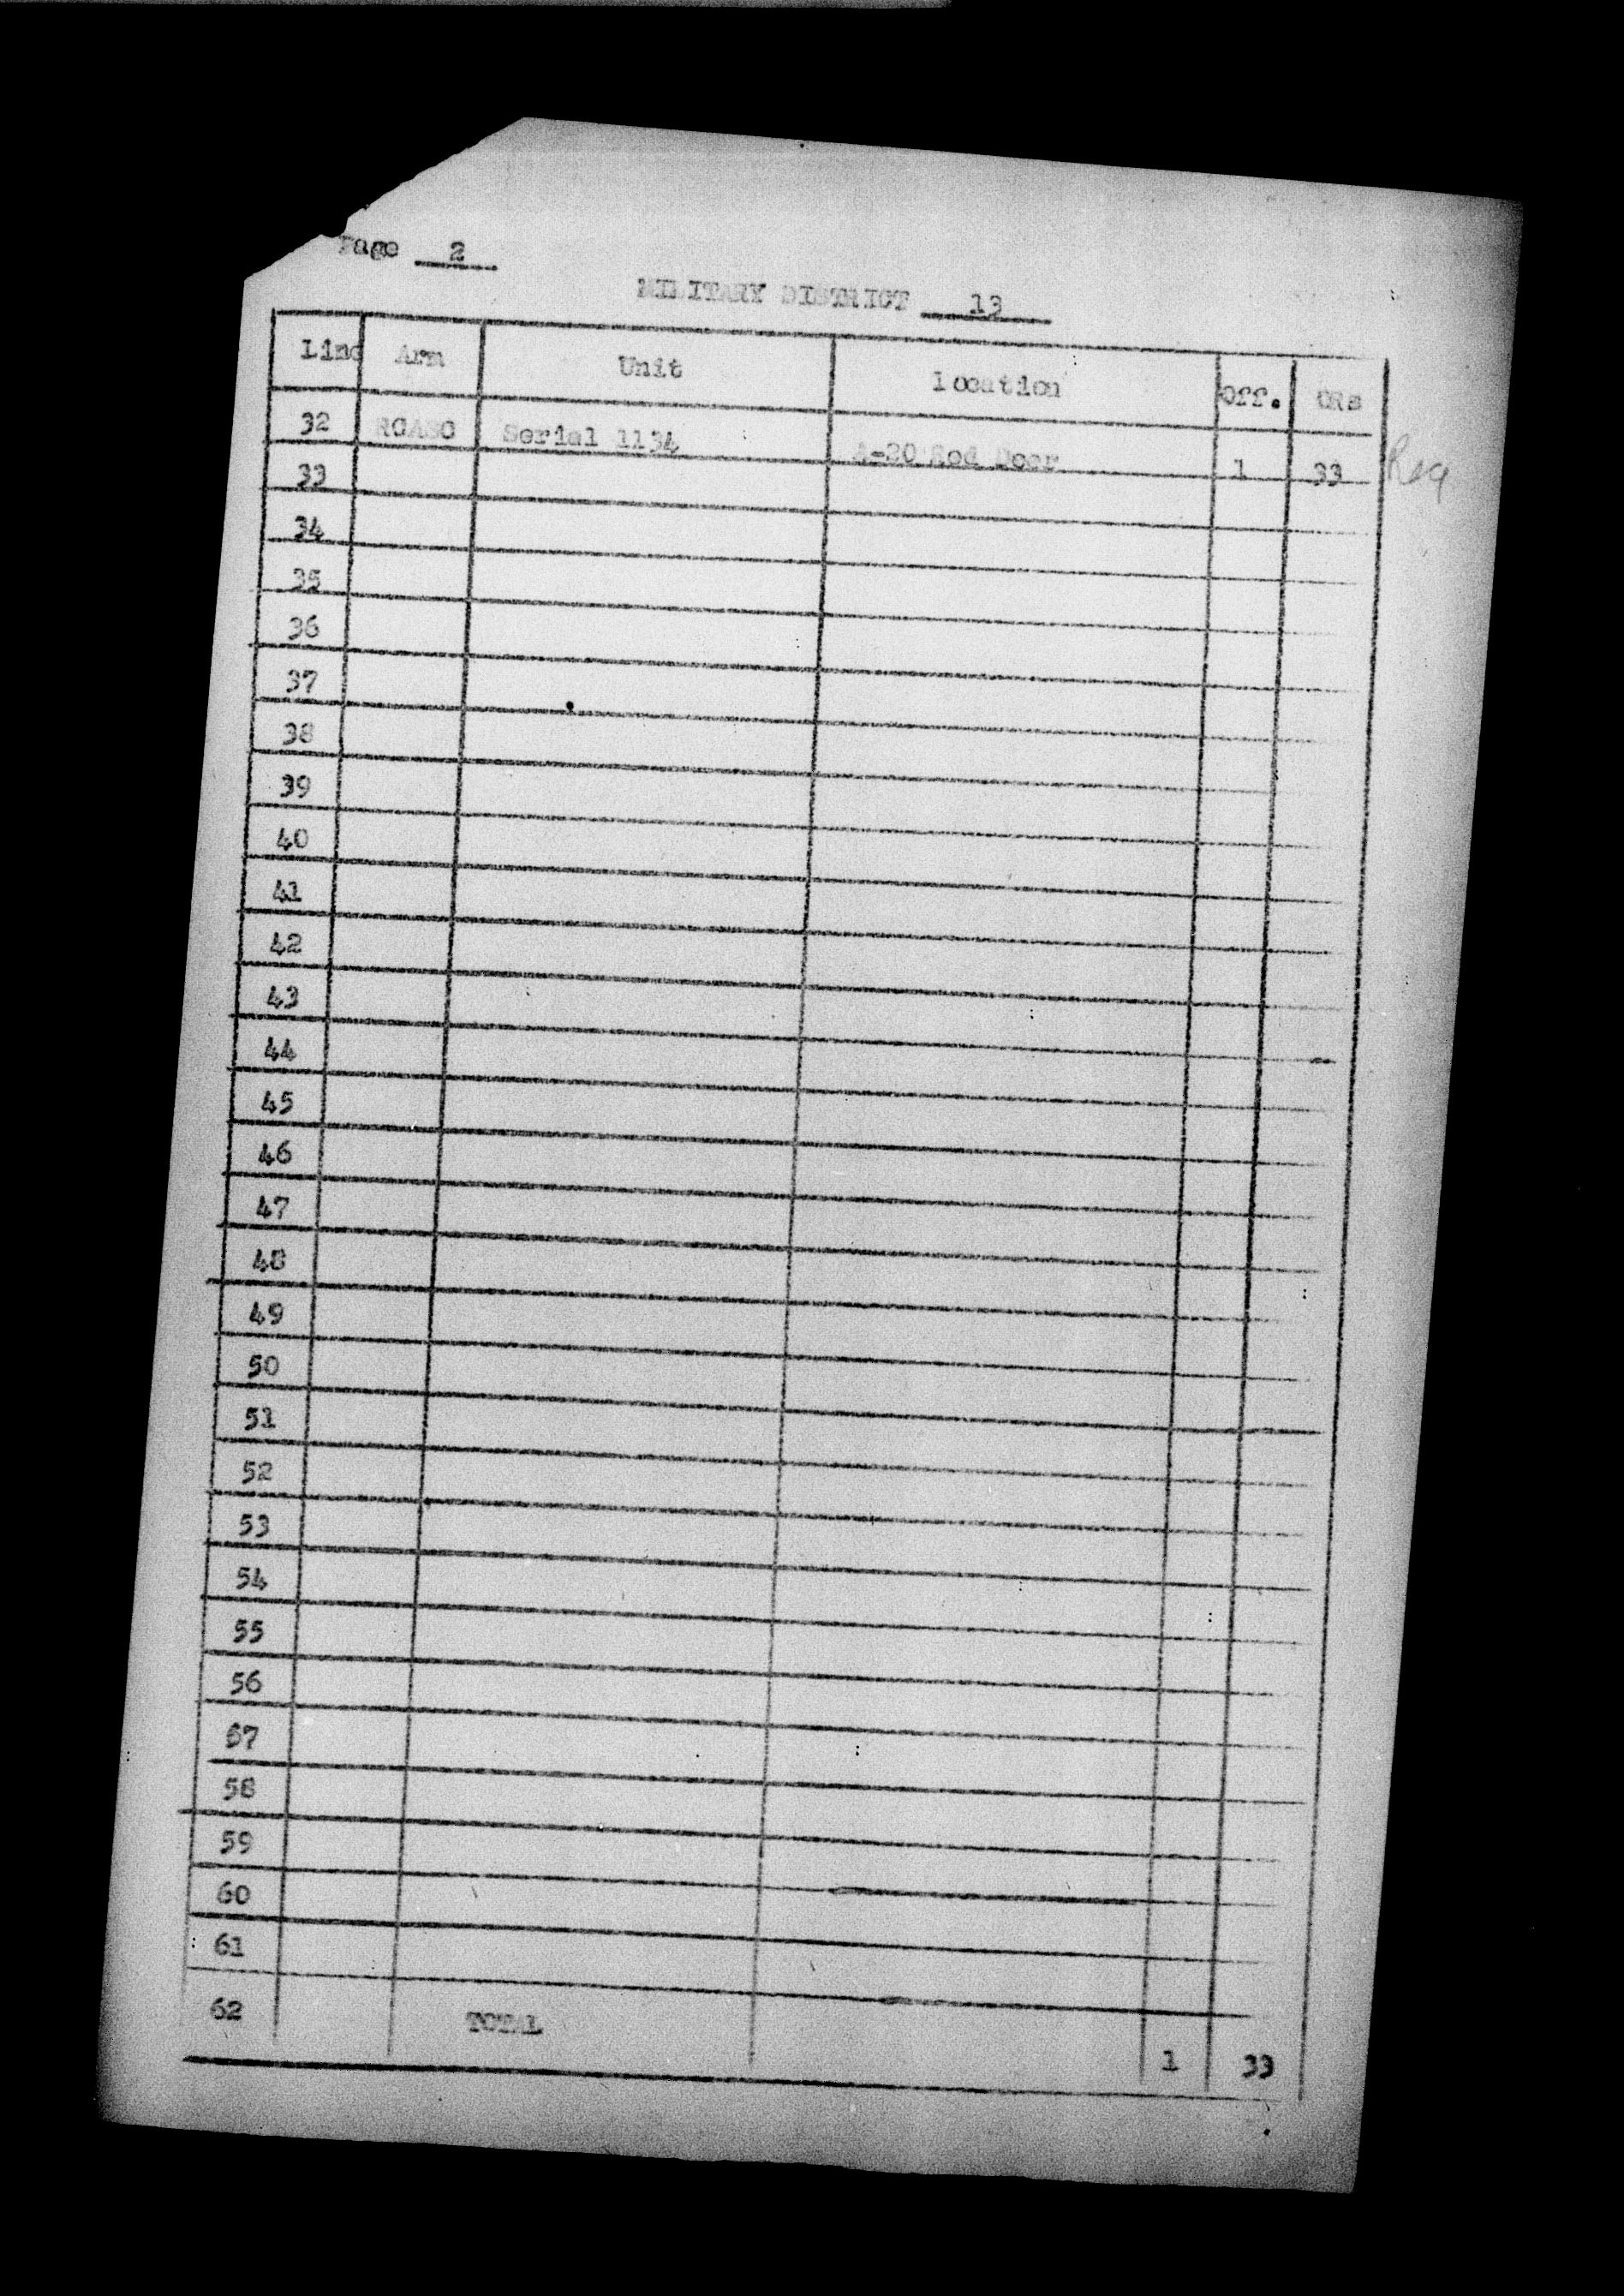 Page 2
MILITARY DISTRICT 13
Line Arm Unit Location Off. ORs
32 RCASC Serial 1134 A-20 Red Deer 1 33
33
34
35
36
37
38
39
40
41
42
43
44
45
46
47
48
49
50
51
52
53
54
55
56
57
58
59
60
61
62 TOTAL 1 33